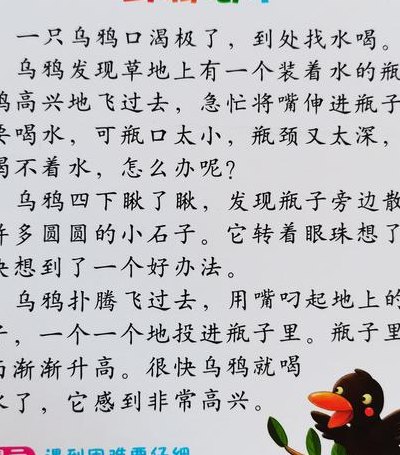 一只乌鸦口渴极了，到处找水喝。
乌鸦发现草地上有一个装着水的瓶
鸦高兴地飞过去，急忙将嘴伸进瓶子
要喝水，可瓶口太小，瓶颈又太深，
喝不着水，怎么办呢？
乌鸦四下瞅了瞅，发现瓶子旁边散
许多圆圆的小石子。它转着眼珠想了
快想到了一个好办法。
乌鸦扑腾飞过去，用嘴叼起地上的
子，一个一个地投进瓶子里。瓶子里
面渐渐升高。很快乌鸦就喝
水了，它感到非常高兴。
遇到困难要仔细